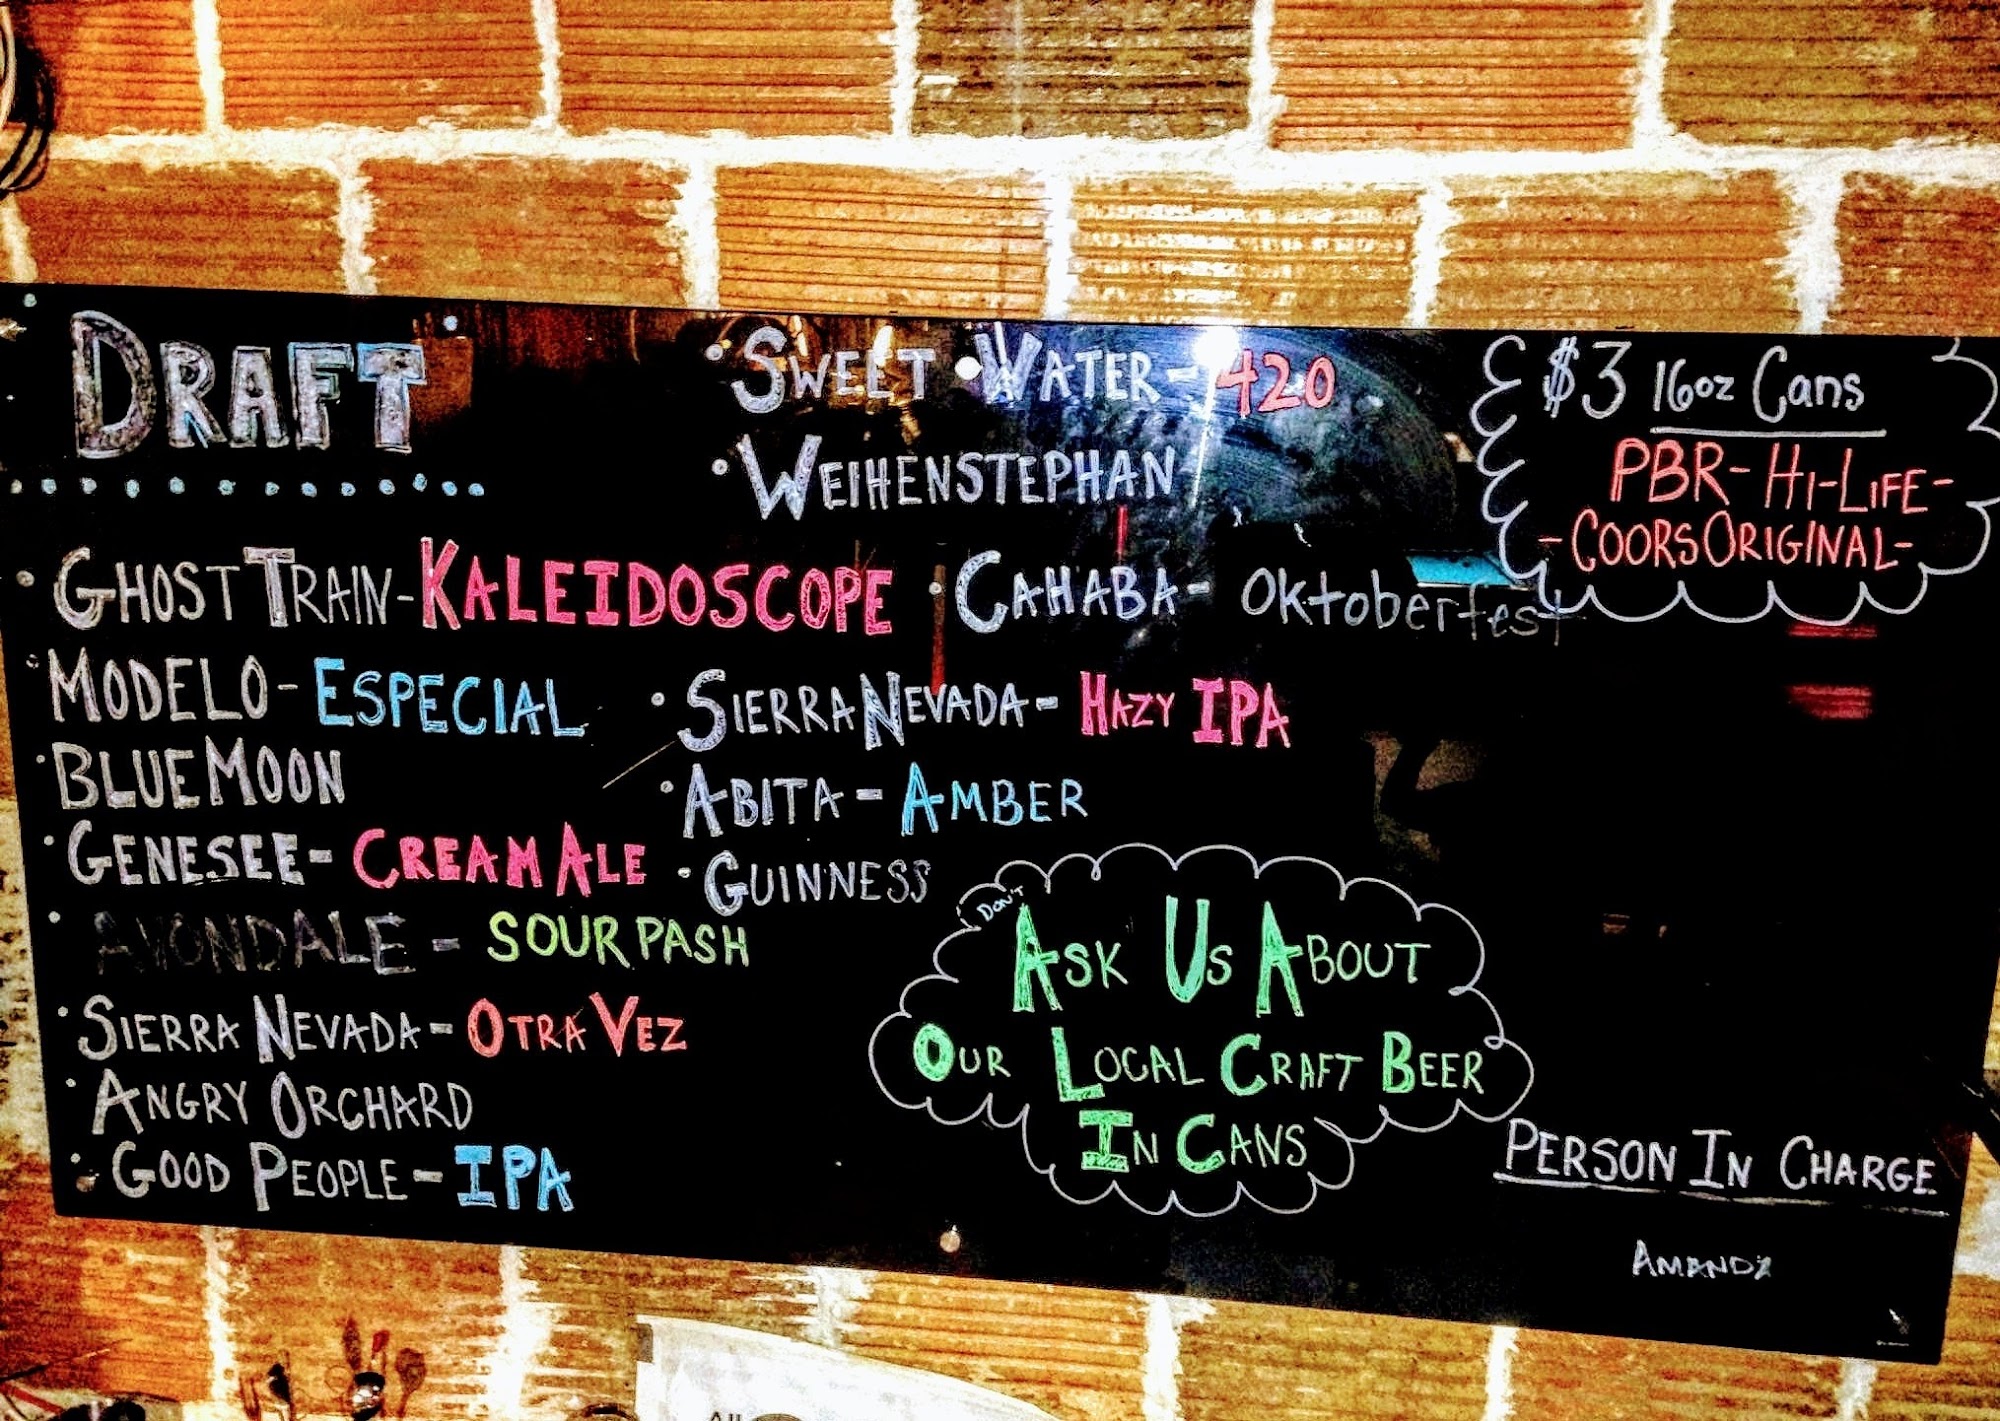 DRAFT
• GHOST TRAIN - KALEIDOSCOPE
• MODELO - ESPECIAL
• BLUE MOON
• GENESEE - CREAM ALE
• AVONDALE - SOUR PASH
• SIERRA NEVADA - OTRA VEZ
• ANGRY ORCHARD
• GOOD PEOPLE - IPA
• SWEET WATER - 420
• WEIHENSTEPHAN
• CAHABA - Oktoberfest
• SIERRA NEVADA - HAZY IPA
• ABITA - AMBER
• GUINNESS
$3 16oz Cans
PBR - HI-LIFE -
- COORS ORIGINAL -
DON'T
ASK US ABOUT
OUR LOCAL CRAFT BEER
IN CANS
PERSON IN CHARGE
AMANDA